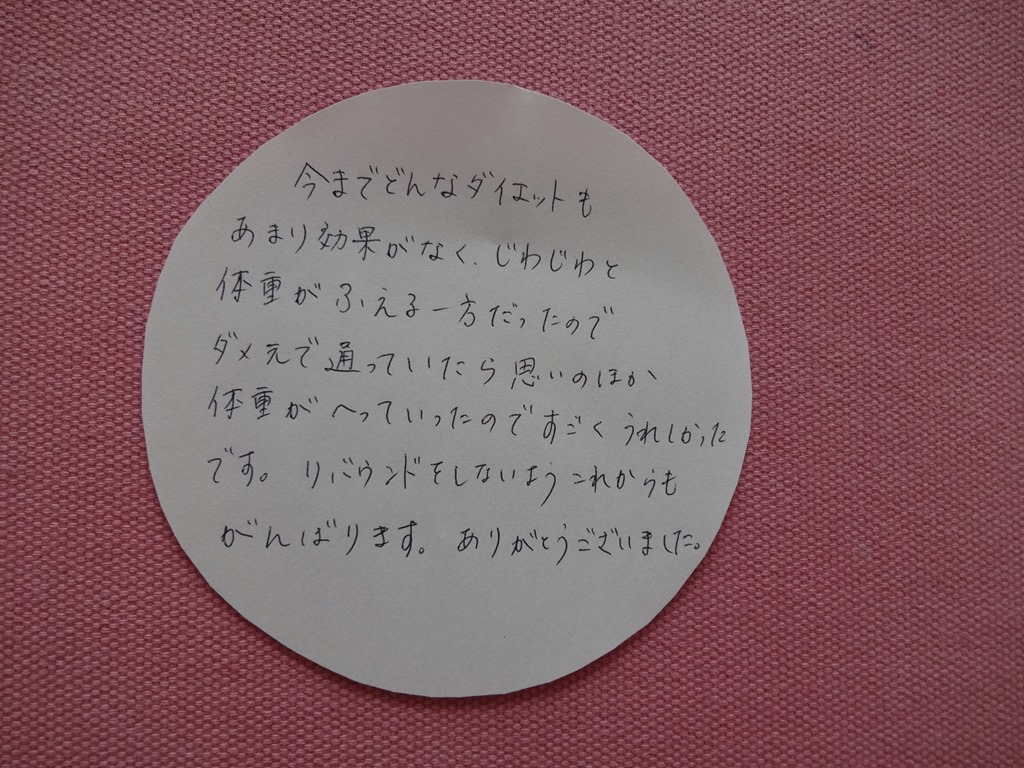 今までどんなダイエットも
あまり効果がなく、じわじわと
体重がふえる一方だったので
ダメ元で通っていたら思いのほか
体重がへっていったのですごくうれしかった
です。リバウンドをしないようこれからも
がんばります。ありがとうございました。